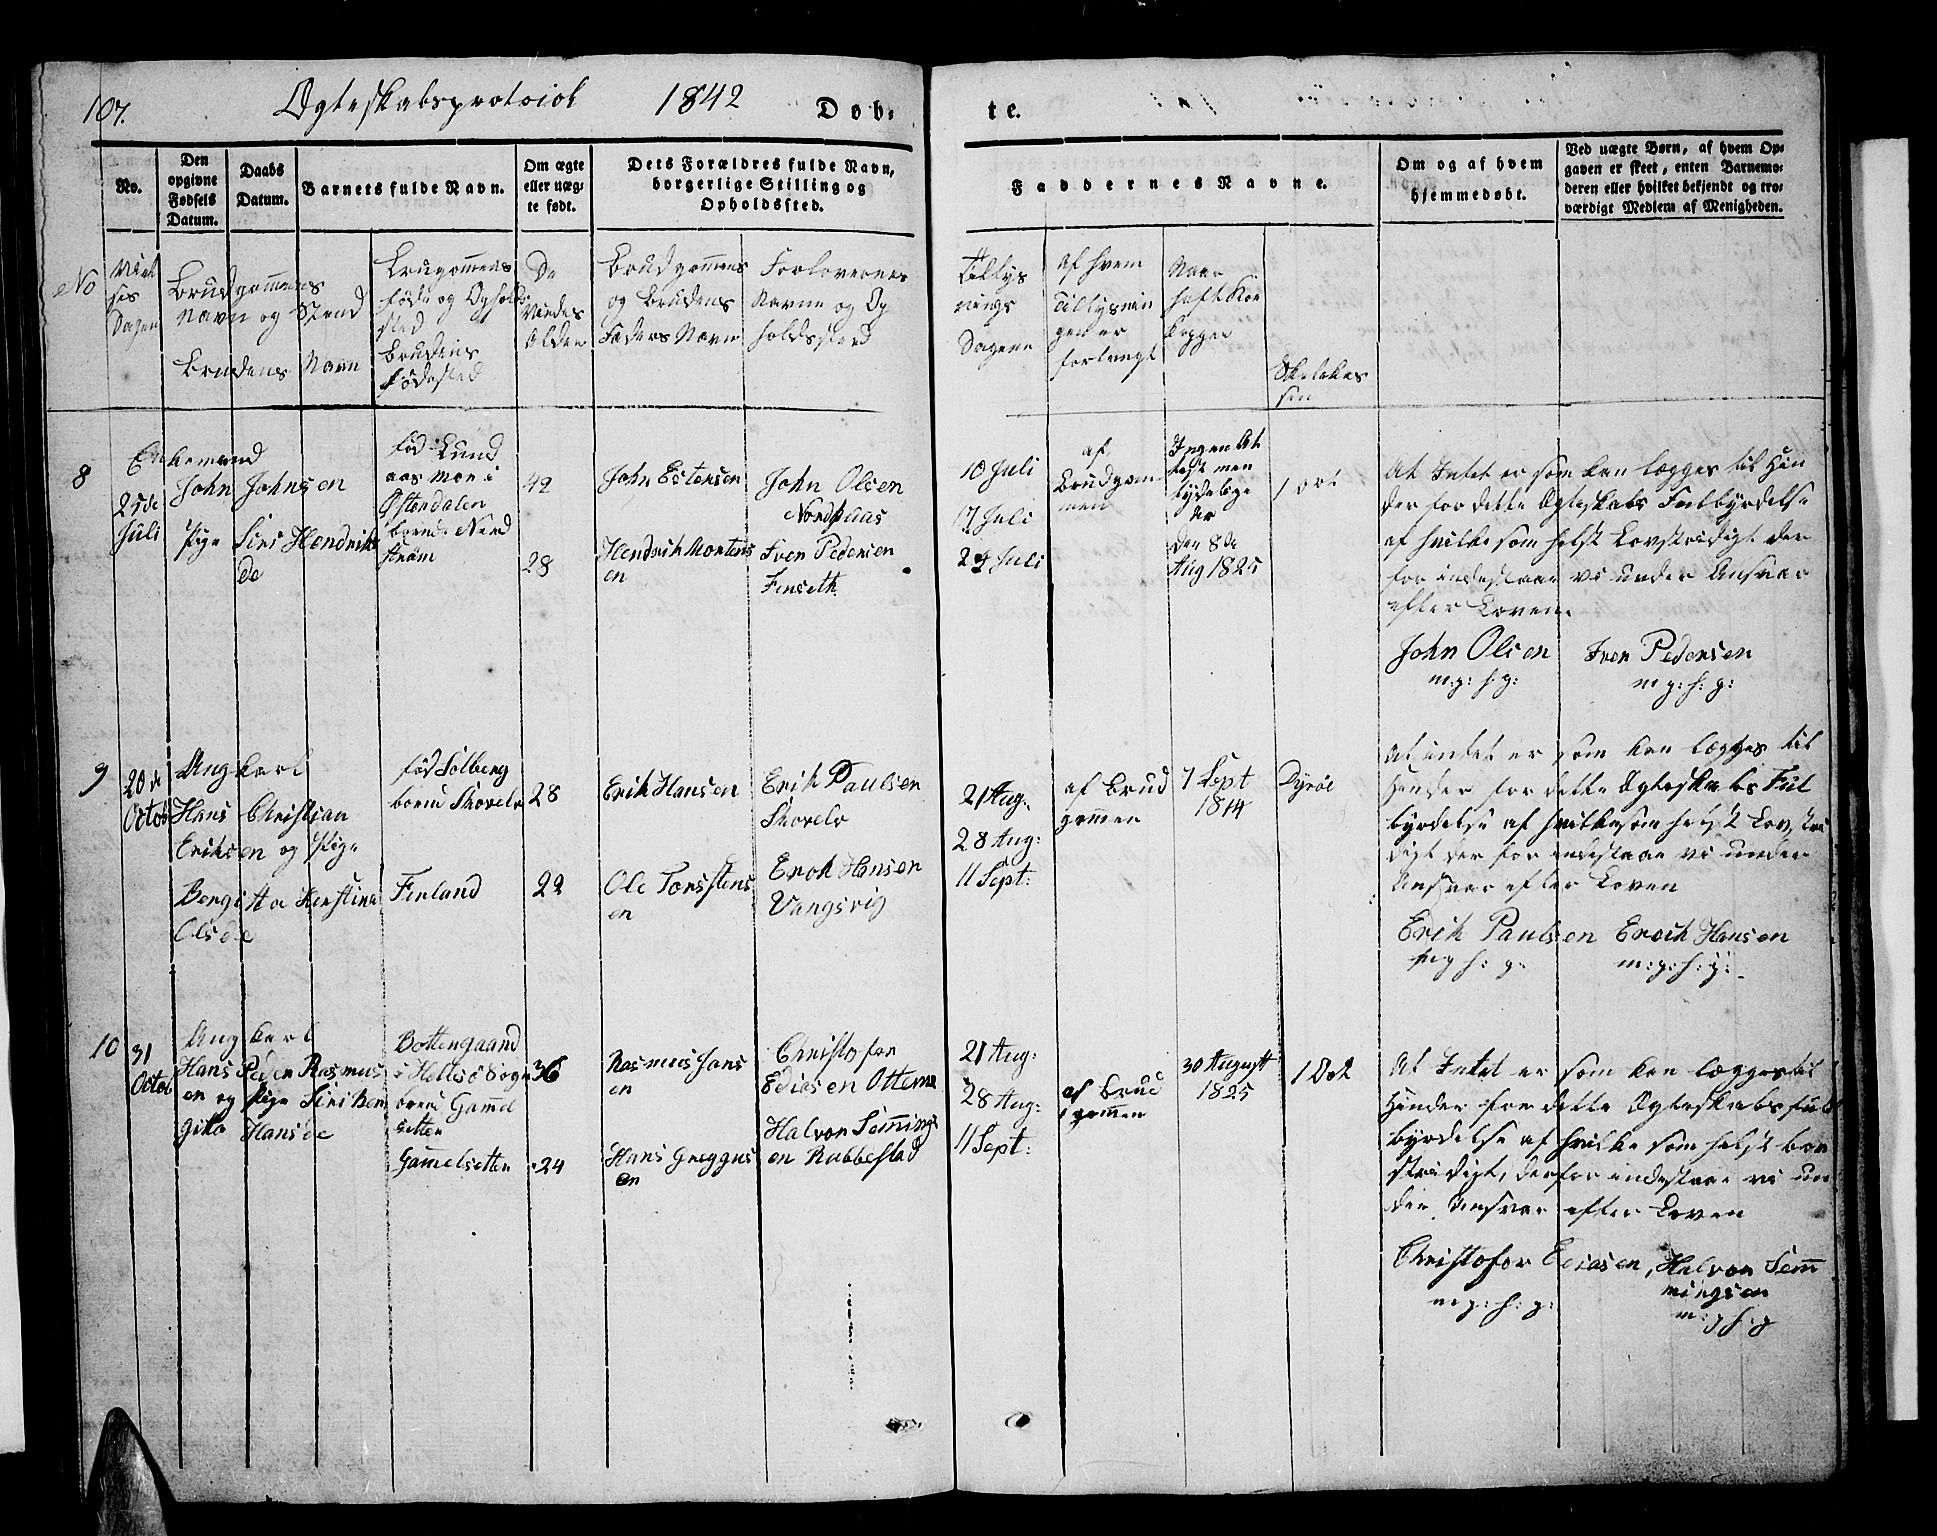 107.
Ægteskabsprotocol 1842
Døb-
te.
No.
Den
opgivne
Fødsels
Datum.
Daabs
Datum.
Barnets fulde Navn.
Om ægte
eller uæg-
te født.
Dets Forældres fulde Navn,
borgerlige Stilling og
Opholdssted.
Faddernes Navne.
Om og af hvem
hjemmedøbt.
Ved uægte Børn, af hvem Op-
gaven er skeet, enten Barnemo-
deren eller hvilket bekjendt og tro-
værdigt Medlem af Menigheden.
No
Viel
ses
Dagen
Brudgommens
Navn og Stand
Brudens Navn
Brugommens
føde og Opholds
sted
Brudens
fødested
De
Viedes
Alder
Brudgommens
og Brudens
Faders Navn
Forlovernes
Navne og Op
holdssted
Tillys
nings
Dagene
af hvem
Tillysnin
gen er
forlangt
Naar
haft Ko
kopper
8
25de
Juli
Enkemand
John Johnsen
Pige Siri Hendriks
de
fød Lund
aasmoe i
Østerdalen
boende Nord
strøm
42
28
John Estensen
Hendrich Mortens
en
John Olsen
Nordkaas
Iver Pedersen
Finseth
10 Juli
17 Juli
24 Juli
af
Brudgom
men
Ingen At
test men
tydelige
Ar
den 8de
Aug 1825
At Intet er som kan lægges til Hin
der for dette Ægteskabs Fulbyrdelse
af hvilke som helst Lovstridigt der
for indestaar vi under Ansvar
efter Loven.
John Olsen Iver Pedersen
m:p: h:g: m p: h: g:
9
20de
Octob
Ungkarl
Hans Christian
Eriksen og Pige
Bergitta Kerstina
Olsde
fød Solberg
boende Skovelv
Finland
28
22
Erik Hansen
Ole Torsstens
en
Erik Paulsen
Skovelv
Erok Hansen
Vangsvig
21 Aug:
28 Aug:
11 Sept:
af Brud
gommen
7 Sept
1814
Dyrøe
At intet er som kan lægges til
Hinder for dette Ægteskabs Ful
byrdelse af hvilkesom helst Lovstri
digt der for indestaar vi under
Ansvar efter Loven
Erik Paulsen Eroch Hansen
m p h: g: m:p:h:g:
10
31
Octob
Ungkarl
Hans Peder Rasmus
en og Pige Siri Ben
gita Hansde
Bottengaard
i Hellsø Sogn
boende Gammel
setten
Gammelsetten
36
24
Rasmus Hans
en
Hans Greggus
en
Christofer
Ediasen Ottern
Halvor Semmings
en Rubbestad
21 Aug:
28 Aug:
11 Sept:
af Brud
gommen
30 Augustt
1825
At Intet er som kan lægges til
Hinder for dette Ægteskabs ful
byrdelse af hvilke som helst Lov
stridigt, derfor indestaar vi un
der Ansvar efter Loven
Christofer Ediasen, Halvor Semm
ingsen
m p: h: g:
m: p h g